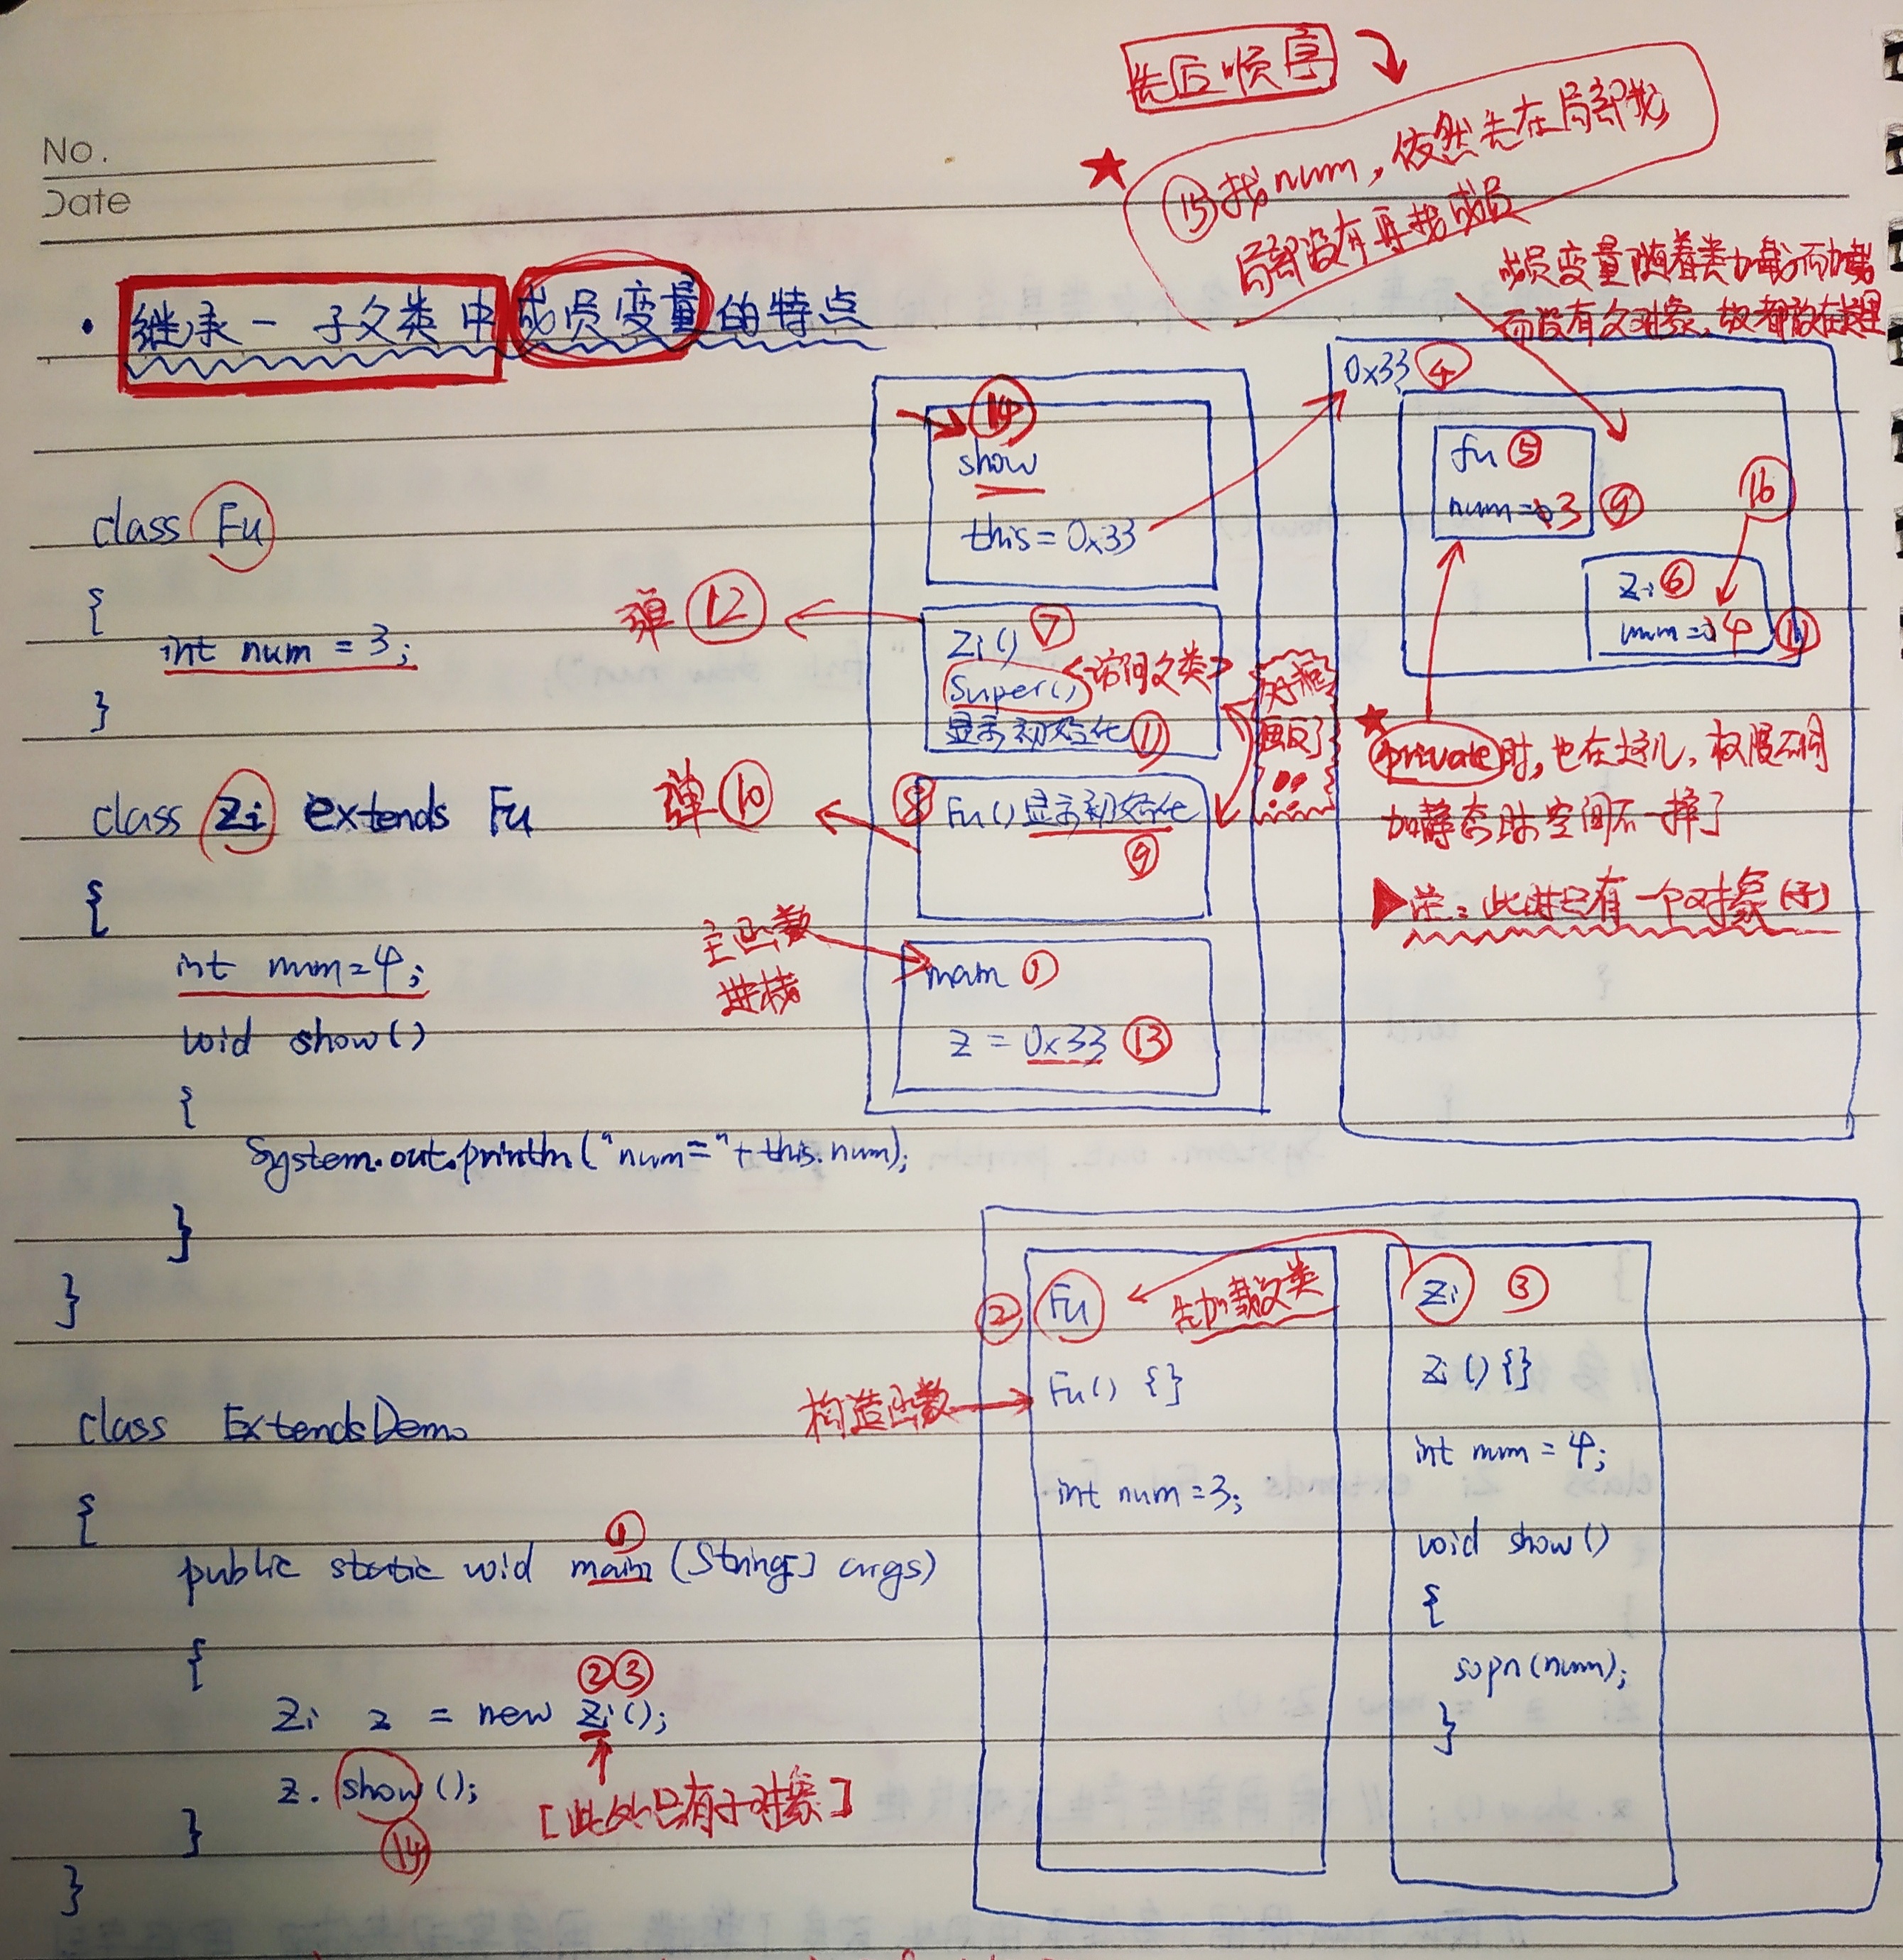 No.
Date
先后顺序
⑮找num，依然先在局部找
局部没有再找成员
成员变量随着类加载而加载
而没有父对象，故都放在这里
· 继承－子父类中成员变量的特点
class Fu
{
int num = 3;
}
class Zi extends Fu
{
int num=4;
void show()
{
System.out.println("num="+this.num);
}
}
class ExtendsDemo
{
①
public static void main (String[] args)
{
②③
Zi z = new Zi();
z. show();
⑭
[此处只有子对象]
}
}
⑭
show
this = 0x33
弹⑫
Zi() ⑦
Super() 访问父类
显示初始化⑪
两框
画反了
弹⑩
⑧ Fu() 显示初始化
⑨
主函数
进栈
main ①
z = 0x33 ⑬
0x33 ④
fu ⑤
num=0 3 ⑨
⑯
Zi ⑥
num=0 4 ⑪
private时，也在这儿，权限不同
加静态时空间不一样了
注：此时只有一个对象(子)
② Fu
先加载父类
构造函数
Fu() {}
int num=3;
Zi ③
Zi() {}
int num = 4;
void show()
{
sopn(num);
}